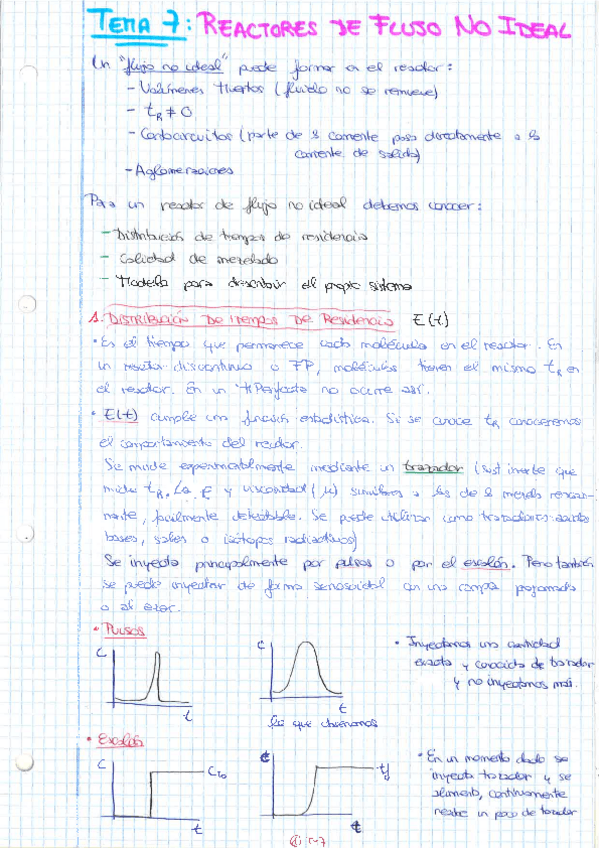 TEMA 7: REACTORES DE FLUJO NO IDEAL
Un "flujo no ideal" puede formar en el reactor:
- Volúmenes muertos (fluido no se remueve)
- tR ≠ 0
- Cortocircuitos (parte de la corriente pasa directamente a la
corriente de salida)
- Aglomeraciones
Para un reactor de flujo no ideal debemos conocer:
- Distribución de tiempos de residencia
- Calidad de mezclado
- Modelo para describir el propio sistema
1. DISTRIBUCIÓN DE TIEMPOS DE RESIDENCIA E(t)
• Es el tiempo que permanece cada molécula en el reactor. En
un reactor discontinuo o FP, moléculas tienen el mismo tR en
el reactor. En un MPerfecto no ocurre así.
• E(t) cumple una función estadística. Si se conoce tR conoceremos
el comportamiento del reactor.
Se mide experimentalmente mediante un trazador (sust inerte que
mide tR. La E y viscosidad (μ) similares a las de la mezcla reaccio-
nante, fácilmente detectable. Se puede utilizar como trazadores: ácidos
bases, sales o isótopos radiactivos)
Se inyecta principalmente por pulsos o por el escalón. Pero también
se puede inyectar de forma senosoidal con una rampa programada
o al azar.
• PULSOS
C
t
C
t
Lo que observamos
• Inyectamos una cantidad
exacta y conocida de trazador
y no inyectamos más.
• Escalón
C
C
t
t
• En un momento dado se
inyecta trazador y se
alimenta, continuamente
un poco de trazador